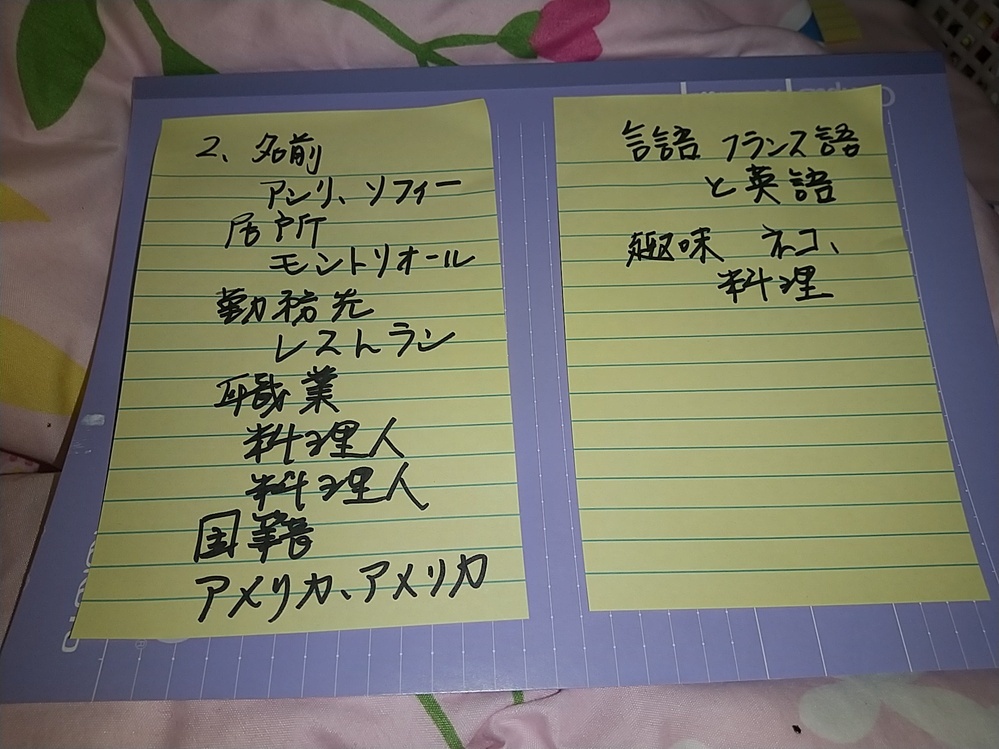 2、名前
アンリ、ソフィー
居所
モントリオール
勤務先
レストラン
職業
料理人
料理人
国籍
アメリカ、アメリカ
言語 フランス語
と英語
趣味 ネコ、
料理